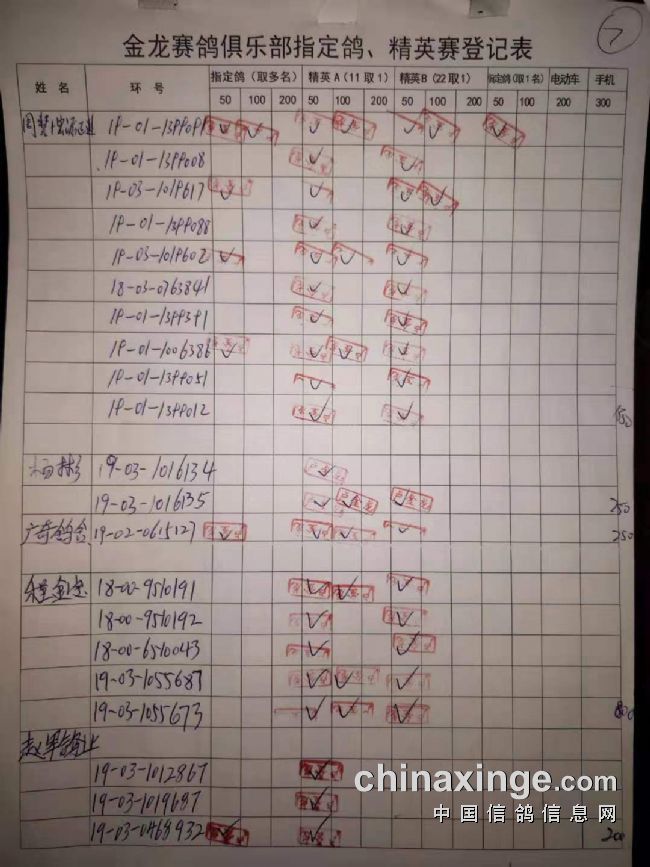 7
金龙赛鸽俱乐部指定鸽、精英赛登记表
姓名 环号 指定鸽（取多名） 精英A（11取1） 精英B（22取1） 指定鸽（取1名） 电动车 手机
50 100 200 50 100 200 50 100 200 50 100 200 300
19-01-1399091
19-01-1399008
19-03-1019617
19-01-1399088
19-03-1019602
18-03-0763841
19-01-1399391
19-01-1006386
19-01-1399051
19-01-1399012
杨彬 19-03-1016134
19-03-1016135 250
广奇鸽舍 19-02-0615127 250
18-00-9510191
18-00-9510192
18-00-6510043
19-03-1055687
19-03-1055673 800
赵军鸽业
19-03-1012867
19-03-1019687
19-03-0468932 200
chinaxinge.com
中国信鸽信息网